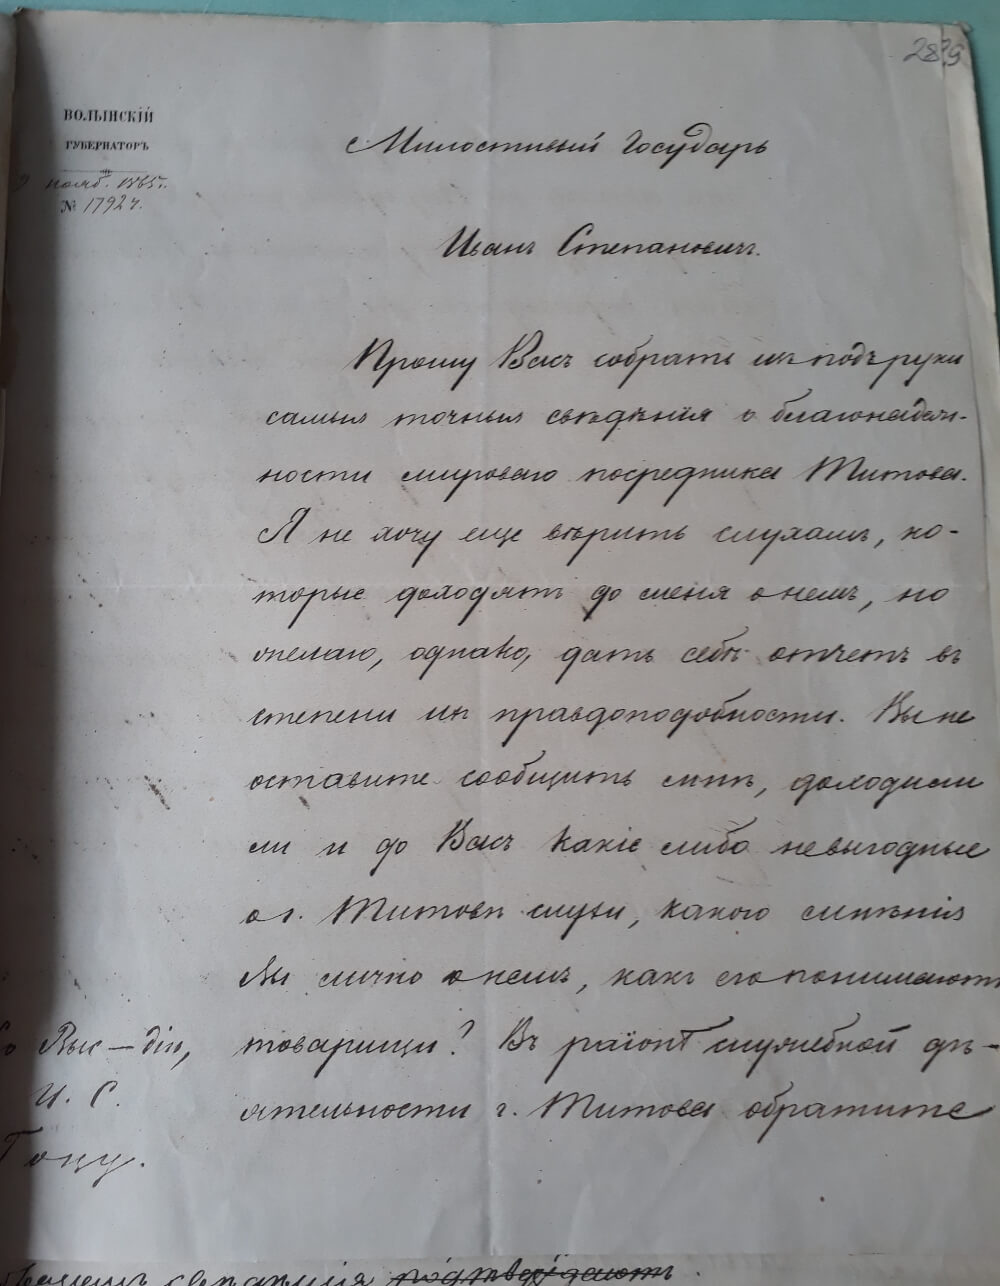 289
ВОЛЫНСКІЙ
ГУБЕРНАТОРЪ
9 нояб. 1865 г.
№ 17924.
Милостивый Государь
Иванъ Степановичъ.
Прошу Васъ собрать изъ подъ руки
самыя точныя свѣдѣнія о благонадеж-
ности мироваго посредника Титова.
Я не хочу еще вѣрить слухамъ, ко-
торые доходятъ до меня о немъ, но
желаю, однако, дать себѣ отчетъ въ
степени ихъ правдоподобности. Вы не
оставите сообщить мнѣ, доходили
ли и до Васъ какіе либо невыгодные
о г. Титовѣ слухи, какого мнѣнія
Вы лично о немъ, какъ его понимаютъ
товарищи? Въ раіонѣ служебной дѣ-
ятельности г. Титова обратите
Выс–дію,
И. С.
Гоцу.
свѣдѣнія подтверждаютъ.